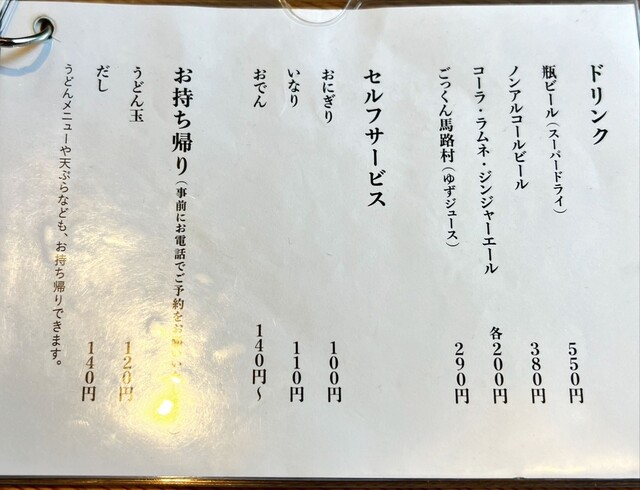 ドリンク
瓶ビール（スーパードライ） 550円
ノンアルコールビール 380円
コーラ・ラムネ・ジンジャーエール 各200円
ごっくん馬路村（ゆずジュース） 290円
セルフサービス
おにぎり 100円
いなり 110円
おでん 140円〜
お持ち帰り（事前にお電話でご予約をお
うどん玉 120円
だし 140円
うどんメニューや天ぷらなども、お持ち帰りできます。